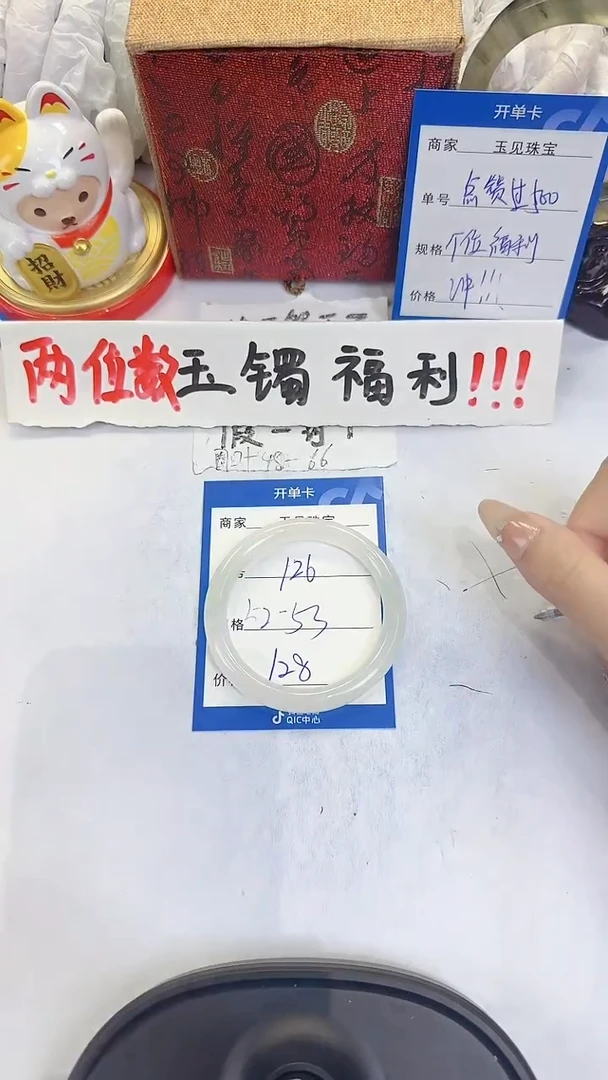 开单卡
商家 玉见珠宝
单号 点赞过500
规格 下位福利
价格 冲!!!
招财
两位数玉镯福利!!!
假一
48- 66
开单卡
商家
126
格 52-53
价 128
QIC中心